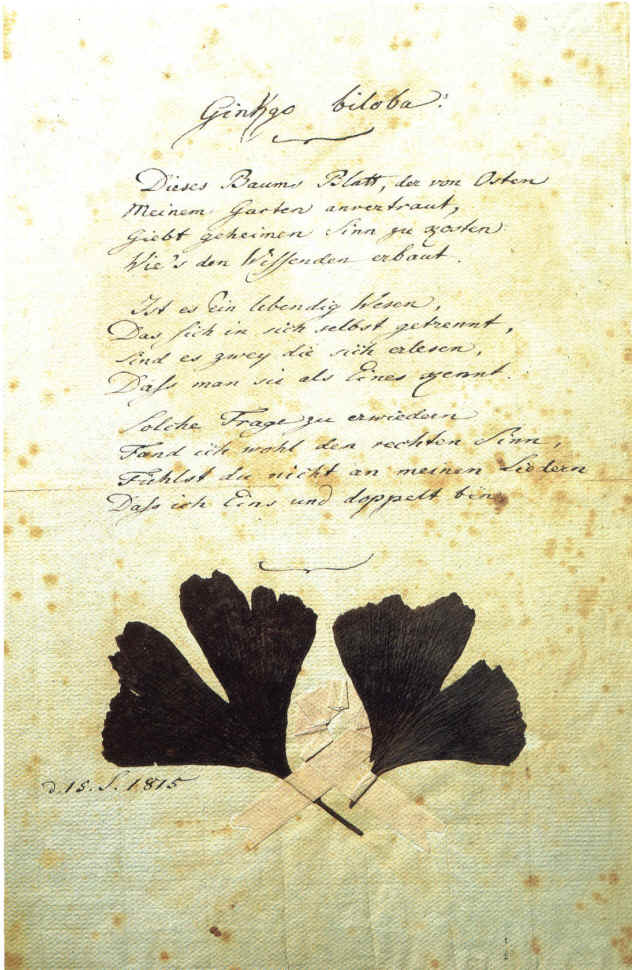 Ginkgo biloba.
Dieses Baums Blatt, der von Osten
Meinem Garten anvertraut,
Giebt geheimen Sinn zu kosten
Wie's den Wissenden erbaut.
Ist es Ein lebendig Wesen,
Das sich in sich selbst getrennt,
Sind es zwey die sich erlesen,
Dass man sie als Eines kennt.
Solche Frage zu erwiedern
Fand ich wohl den rechten Sinn,
Fühlst du nicht an meinen Liedern
Dass ich Eins und doppelt bin
d. 15. S. 1815